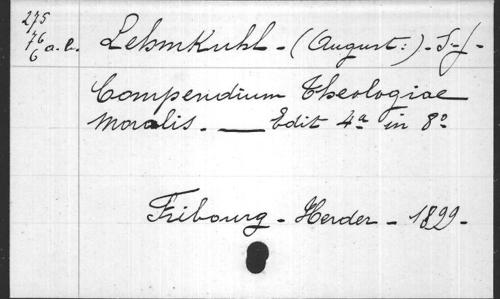 275
76
6 a.b.
Lehmkuhl - (August:) - S-J-
Compendium Theologiae
Moralis. — Edit 4ª in 8º
Fribourg - Herder - 1899-